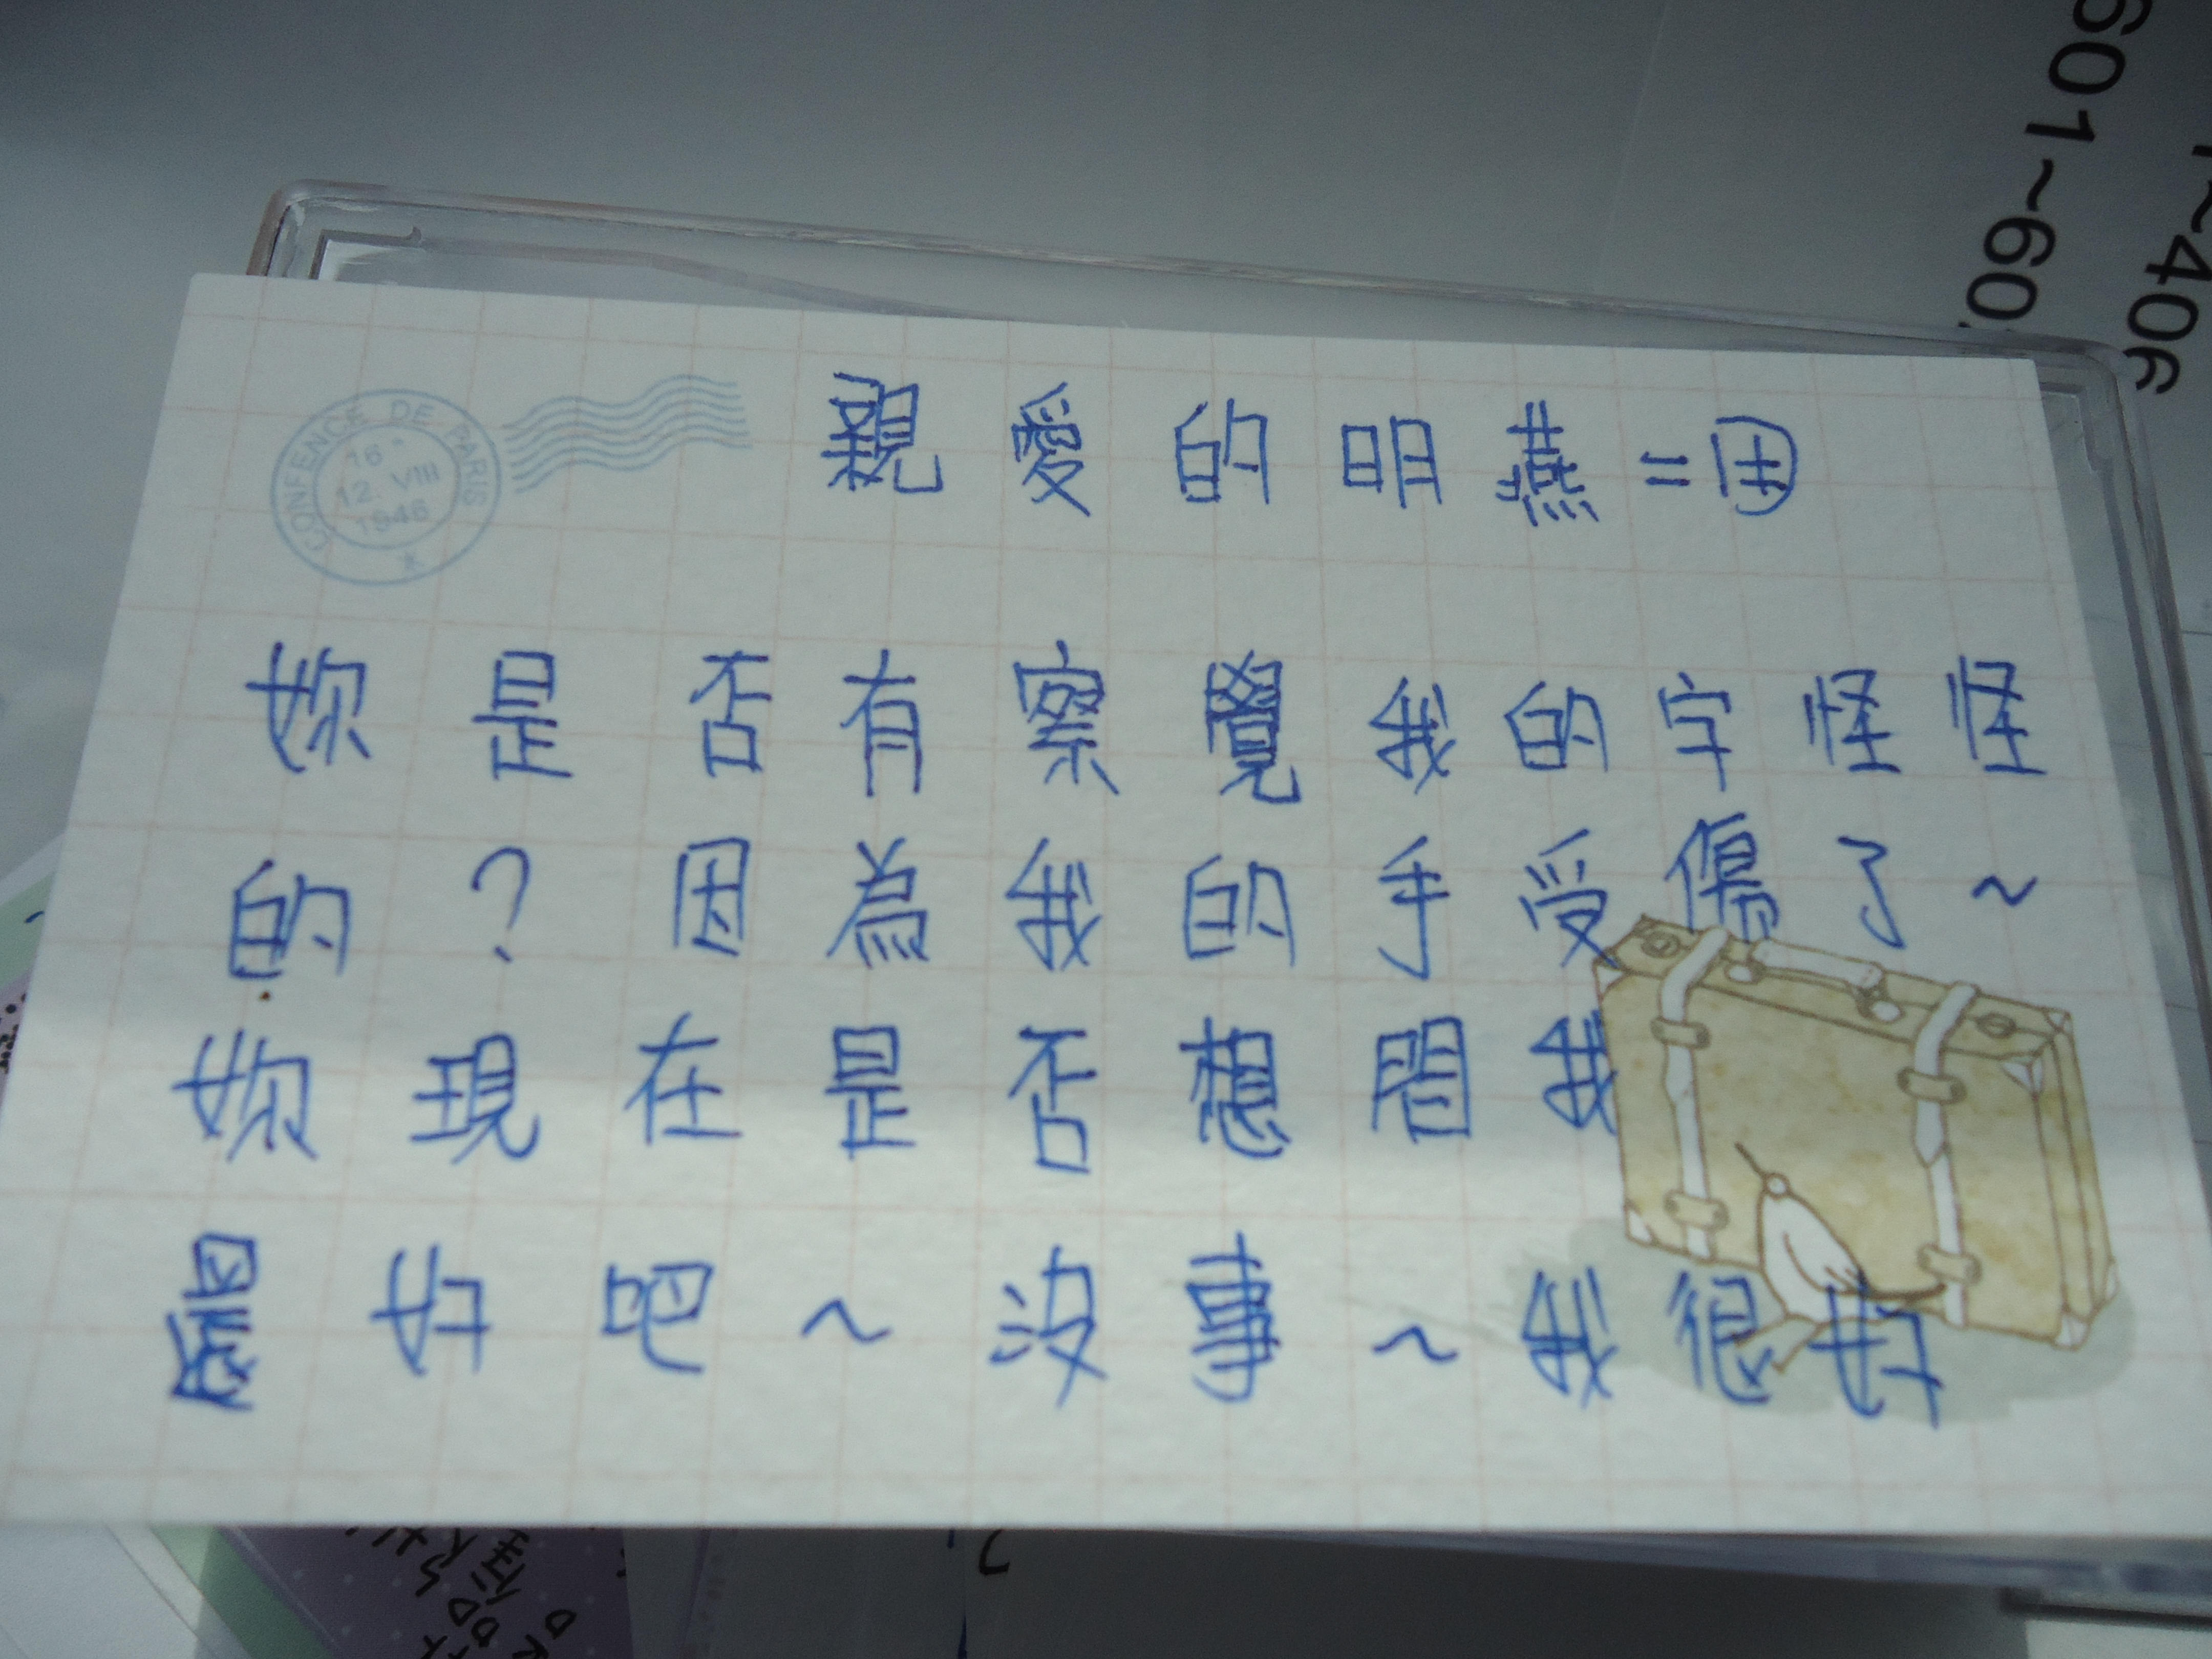 CONFENCE DE PARIS
16 -
12. VIII
1946
親愛的明燕=
妳是否有察覺我的字怪怪
的?因為我的手受傷了~
妳現在是否想問我
還好吧~沒事~我很好
601~60
~406